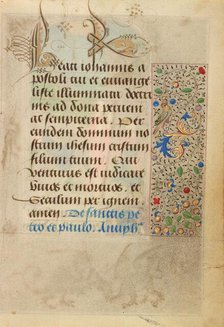 Beati iohannis a
postoli tui et euuange
liste illuminata doctri
nis ad dona perueni
at sempiterna. Per
eundem dominum no
strum ihesum cristum
filium tuum. Qui
venturus est iudicare
viuos et mortuos. et
seculum per ignem.
amen. De sanctis pe
tro et paulo. Antiph'